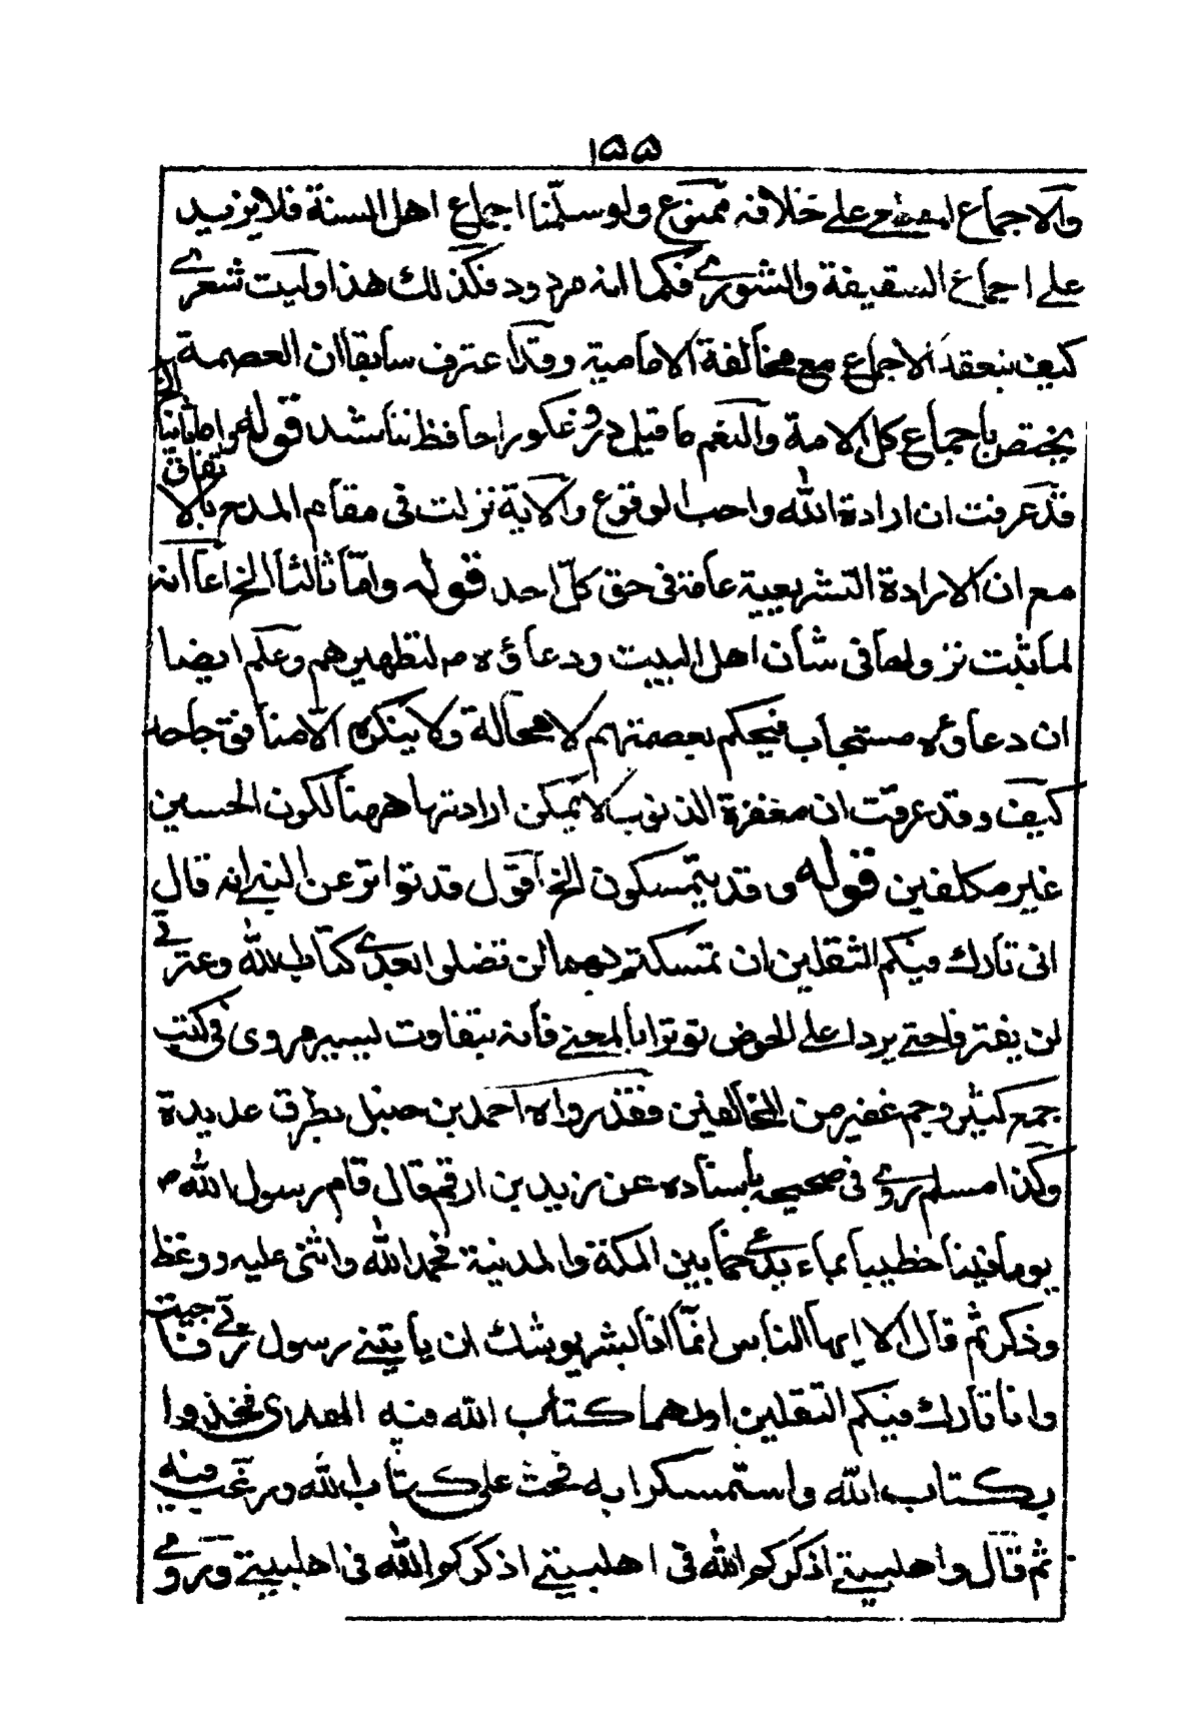 ١٥٥
والاجماع المقطوع على خلافه ممنوع ولو سلمنا اجماع اهل السنة فلا يزيد
على اجماع السقيفة والشورى فكما انه مردود فكذلك هذا وليت شعرى
كيف ينعقد الاجماع مع مخالفة الامامية وقد اعترف سابقا ان العصمة
يختص باجماع كل الامة والنعم ما قيل دروغكورا حافظ نباشد قوله واطبابنا الخ
قد عرفت ان ارادة الله واجب الوقوع والآية نزلت فى مقام المدح بالاتفاق
مع ان الارادة التشريعية عامة فى حق كل احد قوله واما ثالثا الخ اعا انه
لما ثبت نزولها فى شأن اهل البيت ودعاؤه م لتطهيرهم وعلم ايضا
ان دعاؤه مستجاب فيحكم بعصمتهم لا محالة ولا ينكره الا منافق جاحد
كيف وقد عرفت ان مغفرة الذنوب لا يمكن ارادتها ههنا لكون الحسنين
غير مكلفين قوله وقد يتمسكون الخ اقول قد تواتر عن النبى انه قال
انى تارك فيكم الثقلين ان تمسكتم بهما لن تضلوا بعدى كتاب الله وعترتى
لن يفترقا حتى يردا على الحوض تواترا بالمعنى فانه بتفاوت يسير مروى فى كتب
جمع كثير وجم غفير من المخالفين فقد رواه احمد بن حنبل بطرق عديدة
وكذا مسلم روى فى صحيحه باسناده عن زيد بن ارقم قال قام رسول الله ص
يوما فينا خطيبا بماء يدعى خما بين المكة والمدينة فحمد الله واثنى عليه ووعظ
وذكر ثم قال الا ايها الناس انما انا بشر يوشك ان ياتينى رسول ربى فاجيب
وانا تارك فيكم الثقلين اولهما كتاب الله فيه الهدى فخذوا
بكتاب الله واستمسكوا به فحث على كتاب الله ورغب فيه
ثم قال واهلبيتى اذكركم الله فى اهلبيتى اذكركم الله فى اهلبيتى وروى